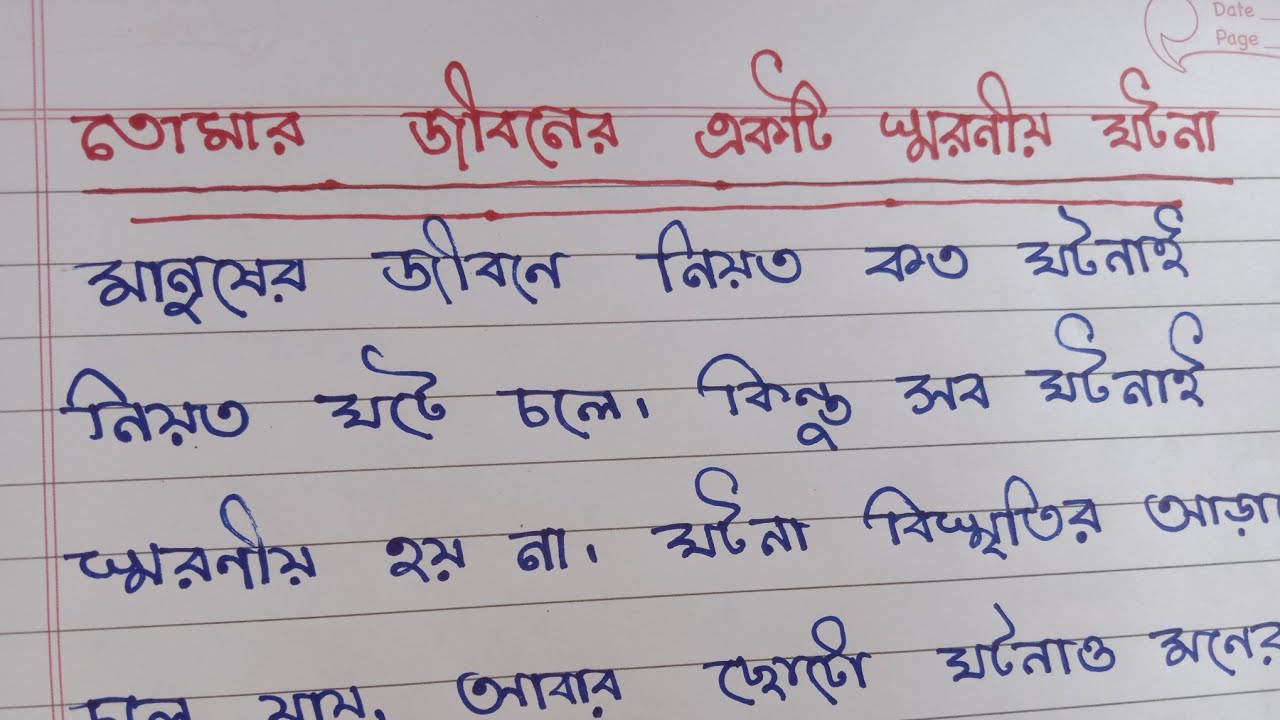 Date
Page
তোমার জীবনের একটি স্মরনীয় ঘটনা
মানুষের জীবনে নিয়ত কত ঘটনাই
নিয়ত ঘটে চলে। কিন্তু সব ঘটনাই
স্মরনীয় হয় না। ঘটনা বিস্মৃতির আড়া
চলে যায়, আবার ছোটো ঘটনাও মনের